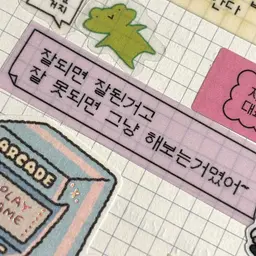 커지
난다
잘되면 잘된거고
잘 못되면 그냥 해보는거였어~
ARCADE
PLAY
GAME